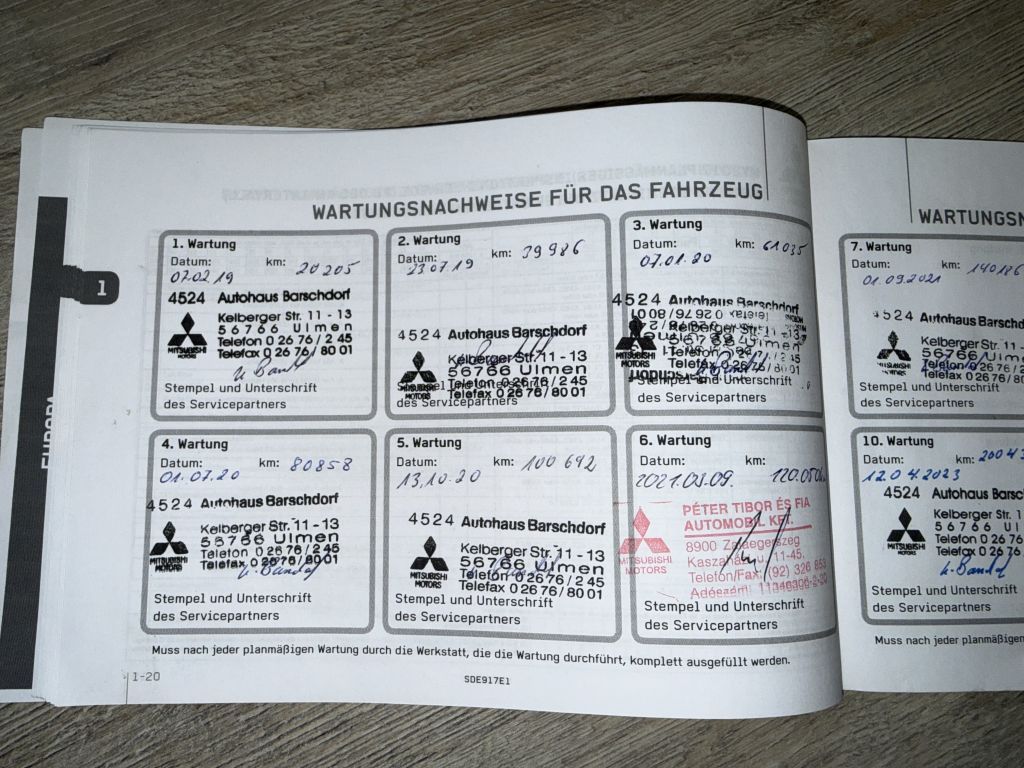 WARTUNGSNACHWEISE FÜR DAS FAHRZEUG
1. Wartung
Datum: km: 20 205
07.02.19
4524 Autohaus Barschdorf
Kelberger Str. 11 - 13
56766 Ulmen
Telefon 0 26 76 / 2 45
Telefax 0 26 76 / 80 01
MITSUBISHI
MOTORS
Stempel und Unterschrift
des Servicepartners
2. Wartung
Datum: km: 39 986
23.07.19
4524 Autohaus Barschdorf
Kelberger Str. 11 - 13
56766 Ulmen
Telefon 0 26 76 / 2 45
Telefax 0 26 76 / 80 01
MOTORS
Stempel und Unterschrift
des Servicepartners
3. Wartung
Datum: km: 61 035
07.01.20
4524 Autohaus Barschdorf
Stempel und Unterschrift
des Servicepartners
4. Wartung
Datum: km: 80858
01.07.20
4524 Autohaus Barschdorf
Kelberger Str. 11 - 13
56766 Ulmen
Telefon 0 26 76 / 2 45
Telefax 0 26 76 / 80 01
MITSUBISHI
MOTORS
Stempel und Unterschrift
des Servicepartners
5. Wartung
Datum: km: 100 642
13.10.20
4524 Autohaus Barschdorf
Kelberger Str. 11 - 13
56766 Ulmen
Telefon 0 26 76 / 2 45
Telefax 0 26 76 / 80 01
MITSUBISHI
MOTORS
Stempel und Unterschrift
des Servicepartners
6. Wartung
Datum: km:
2021.03.09. 120.050
PÉTER TIBOR ÉS FIA
AUTOMOBIL KFT.
8900 Zalaegerszeg
Kaszaházi u. 11-45.
Telefon/Fax: (92) 326 853
MITSUBISHI
MOTORS
Stempel und Unterschrift
des Servicepartners
Muss nach jeder planmäßigen Wartung durch die Werkstatt, die die Wartung durchführt, komplett ausgefüllt werden.
1-20
SDE917E1
1
EUROPA
WARTUNGSN
7. Wartung
Datum: km: 140186
01.09.2021
4524 Autohaus
Kelberger St
56766 U
Telefon 0 26 76
Telefax 0 26 76
Stempel und Unterschrift
des Servicepartners
10. Wartung
Datum: km:
12.04.2023
4524 Autohaus Ba
Kelberger St
56766 Ul
Telefon 0 26 76
Telefax 0 26 76
MITSUBISHI
MOTORS
Stempel und Unterschrift
des Servicepartners
Muss nach jeder planmäßigen